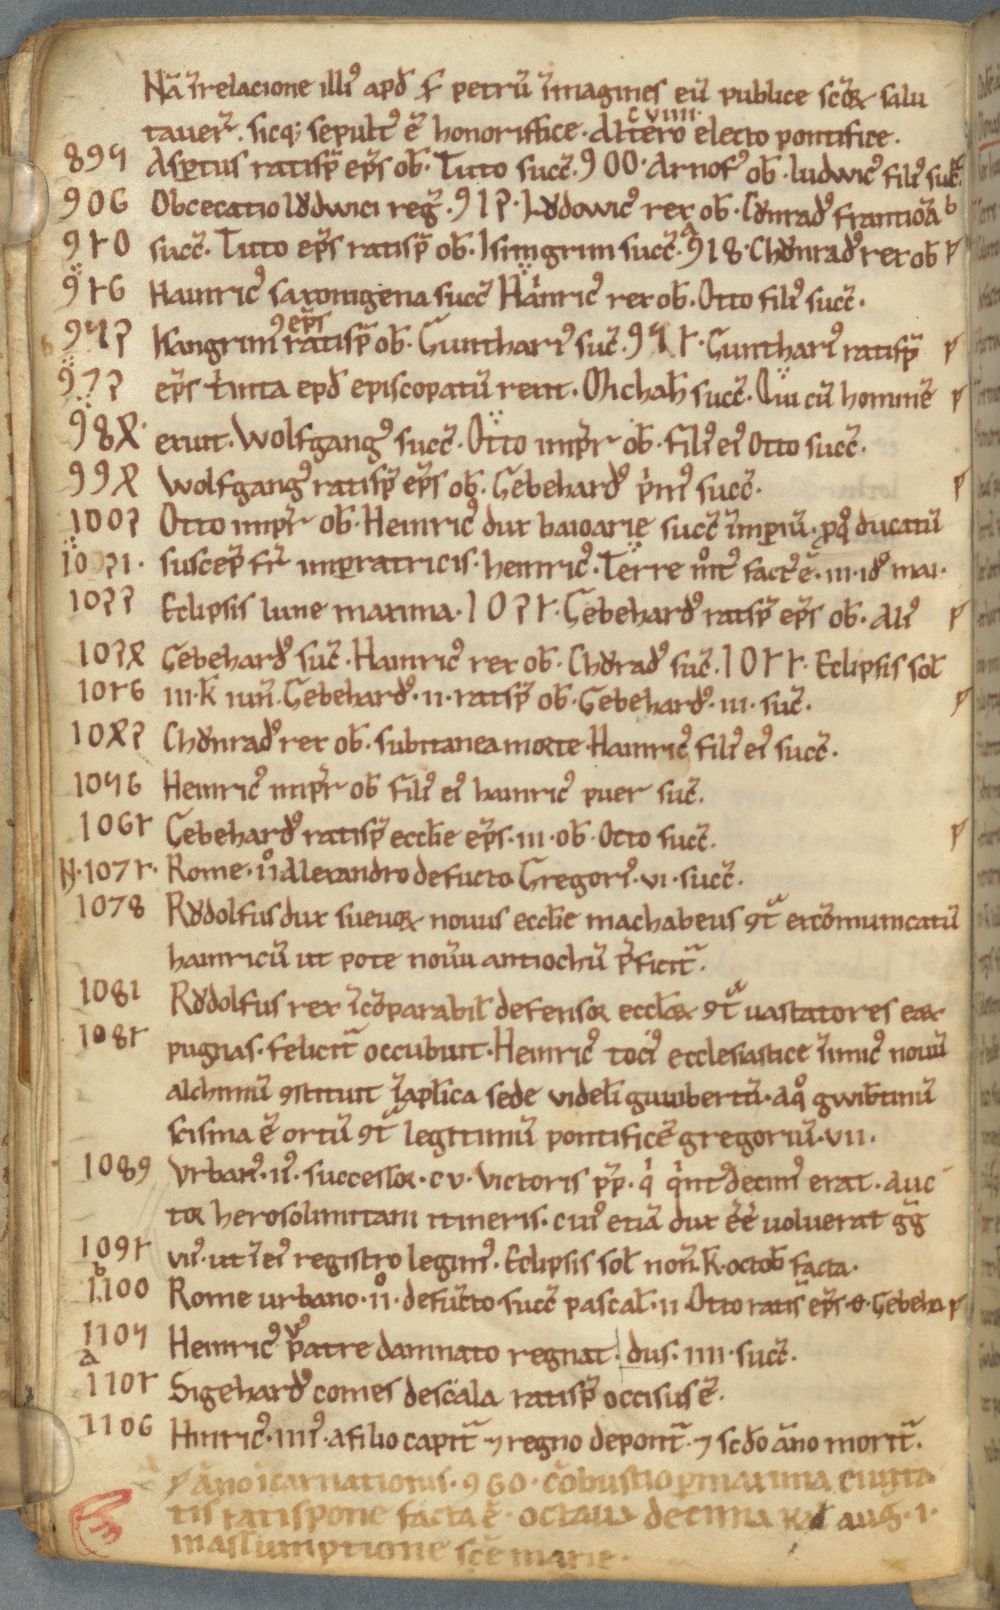 Nā ī relacione illi⁹ apđ S petrū īmagines eū publice scōꝝ salu
tauer̄. sicq; sepult⁹ ē honorifice. Altero electo pontifice.
cviiii.
899 Aspertus ratisp̄ ep̄s ob̄. Tuto succ̄. 900. Arnolf⁹ ob̄. ludwic⁹ fili⁹ suc̄.
906 Obcecatio lůdwici reḡ. 912. Lůdowic⁹ rex ob̄. Cůnrad⁹ b
930 succ̄. Tuto ep̄s ratisp̄ ob̄. Isingrim succ̄. a 918. Chůnrad⁹ rex ob̄ p
936 Hainric⁹ saxonigena succ̄ Hainric⁹ rex ob̄. Otto fili⁹ succ̄.
942 Isangrim⁹ ep̄s ratisp̄ ob̄. Gunthari⁹ suc̄. 943. Gunthari⁹ ratisp̄ p
972 ep̄s ep̄d episcopatū rent. Michahel succ̄. Qui cū p
984. erunt. Wolfgang⁹ succ̄. Otto imp̄r ob̄. fili⁹ ei⁹ Otto succ̄.
994 Wolfgang⁹ ratisp̄ ep̄s ob̄. Gebehard⁹ p̄m⁹ succ̄. p
1002 Otto imp̄r ob̄. Heinric⁹ dux baioarie succ̄ ī imp̄iū. p⁹ q̊ ducatū
1021. suscep̄ fr̄ imperatricis. heinric⁹. Terre mot⁹ fact⁹ ē. iii. id⁹ mai.
1022 Eclipsis lune maxima. 1023. Gebehard⁹ ratisp̄ ep̄s ob̄. Ali⁹ p
1024 Gebehard⁹ suc̄. Hainric⁹ rex ob̄. Chůrad⁹ suc̄. 1033. Eclipsis sol̄
1036 iii. k̄ iun̄. Gebehard⁹. ii. ratisp̄ ob̄. Gebehard⁹. iii. suc̄. p
1042 Chůnrad⁹ rex ob̄. subitanea morte. Hainric⁹ fili⁹ ei⁹ succ̄.
1056 Heinric⁹ imp̄r ob̄ fili⁹ ei⁹ hainric⁹ puer suc̄.
1063 Gebehard⁹ ratisp̄ eccl̄ie ep̄s. iii. ob̄. Otto succ̄. p
N. 1073. Rome. ii̊ Alexandro defūcto Gregori⁹. vi. succ̄.
1078 Růdolfus dux sueuoꝝ nouus eccl̄ie machabeus ꝯt̄ excōmunicatū
hainricū ut pote nouū antiochū p̄ficit̄.
1081 Růdolfus rex īcōparabil̄ defensor eccl̄aꝝ ꝯt̄ uastatores eaꝝ
1083 pugnas. felicit̄ occubuit. Heinric⁹ toci⁹ ecclesiastice īimic⁹ nouū
alchimū ꝯstituit ī ap̄lica sede videl̄ guibertū. A q̊ gwib̄tinū
scisma ē ortū ꝯt̄ legitimū pontificē gregoriū. vii.
1089 Vrban⁹. ii⁹. successor. cv. victoris p̄p. q̇ q̇nt⁹decim⁹ erat. auc
tor herosolimitani itineris. cui⁹ etiā dux ēē uoluerat gg̅
1093 vii⁹. ut ī ei⁹ registro legim⁹. Eclipsis sol̄ non̄. k̄. octob̄ facta.
b
1100 Rome urbano. ii̊. defūcto succ̄ pascal̄. ii. Otto ratis̄ ep̄s o. Gebeha p
1105 Heinric⁹ v⁹ patre damnato regnat. dus. iiii. succ̄.
a
1105 Sigehard⁹ comes descala ratisp̄ occisus ē.
1106 Hinric⁹. iiii⁹. a filio capit̄ ⁊ regno deponit̄. ⁊ scđo āno morit̄.
p āno īcarnationis. 960. cōbustio p̱maxima ciuita
tis ratispone facta ē. octaua decima kł aug. i.
massumptione scē marie.